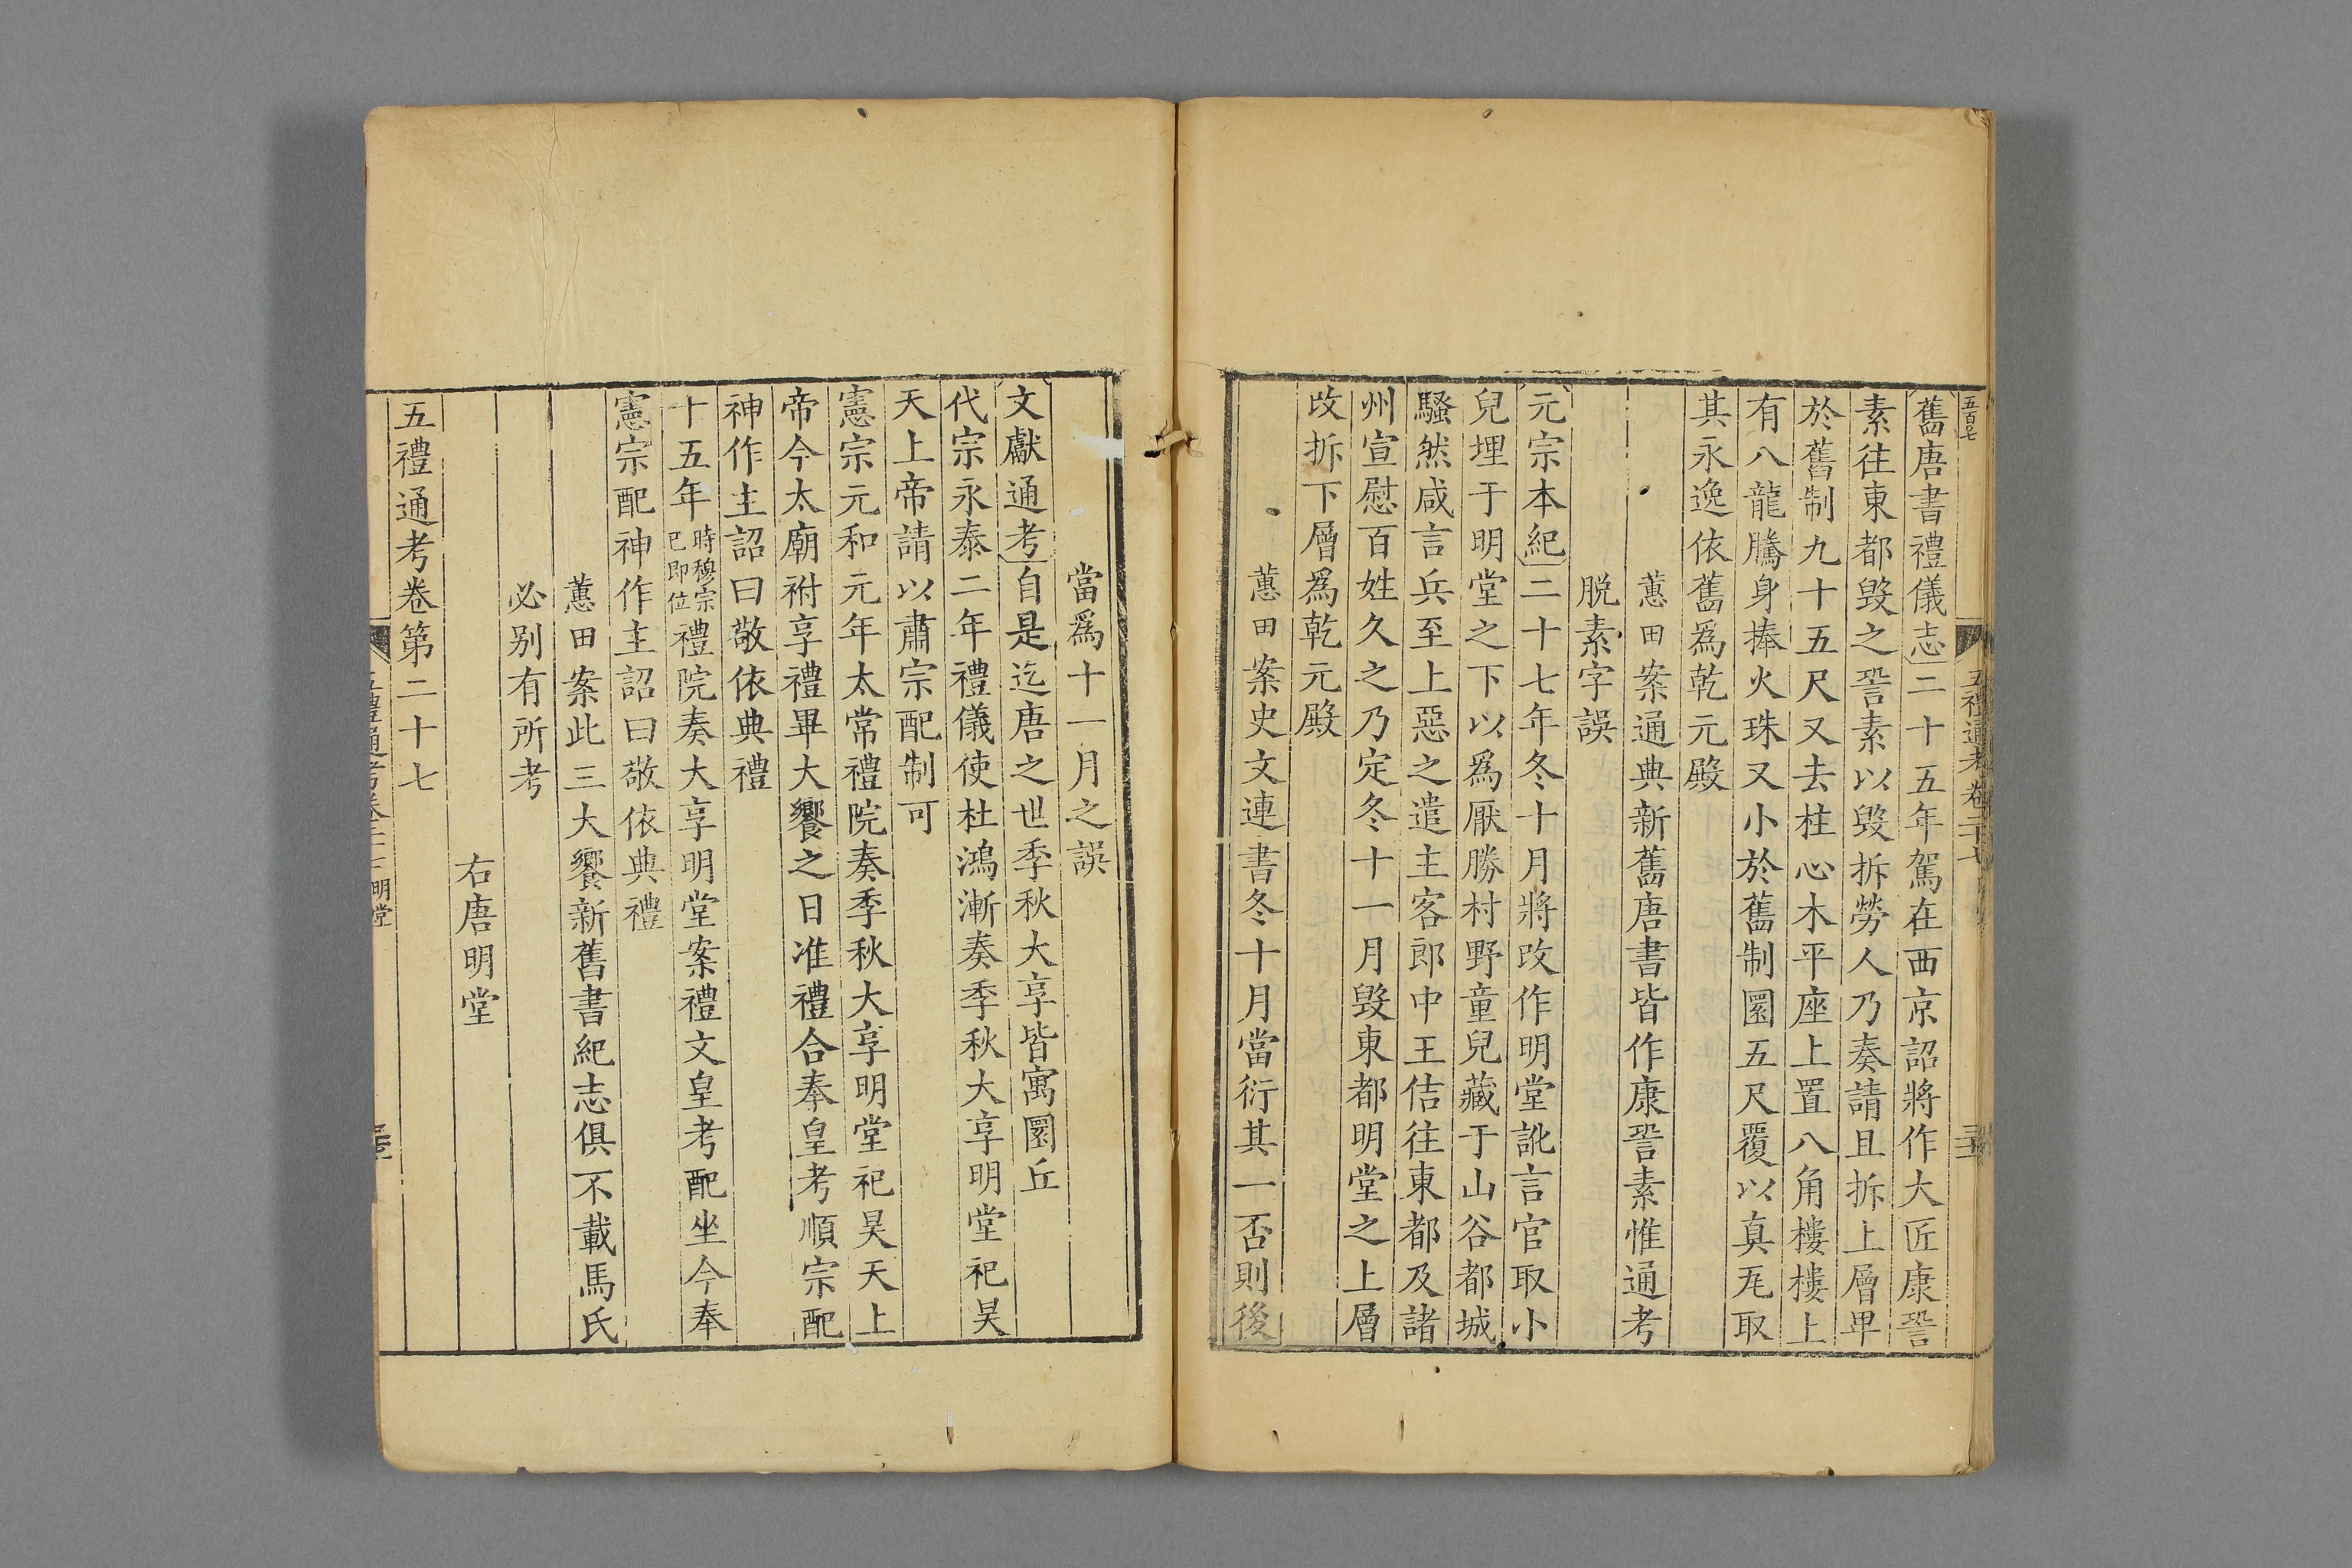 五百七
五禮通考卷二十七
舊唐書禮儀志二十五年駕在西京詔將作大匠康㲄
素往東都毀之㲄素以毀拆勞人乃奏請且拆上層卑
於舊制九十五尺又去柱心木平座上置八角樓樓上
有八龍騰身捧火珠又小於舊制圜五尺覆以真瓦取
其永逸依舊爲乾元殿
蕙田案通典新舊唐書皆作康㲄素惟通考
脱素字誤
元宗本紀二十七年冬十月將改作明堂訛言官取小
兒埋于明堂之下以爲厭勝村野童兒藏于山谷都城
騷然咸言兵至上惡之遣主客郎中王佶往東都及諸
州宣慰百姓久之乃定冬十一月毀東都明堂之上層
改拆下層爲乾元殿
蕙田案史文連書冬十月當衍其一否則後
當爲十一月之誤
文獻通考自是迄唐之世季秋大享皆寓圜丘
代宗永泰二年禮儀使杜鴻漸奏季秋大享明堂祀昊
天上帝請以肅宗配制可
憲宗元和元年太常禮院奏季秋大享明堂祀昊天上
帝今太廟祔享禮畢大饗之日准禮合奉皇考順宗配
神作主詔曰敬依典禮
十五年時穆宗已即位禮院奏大享明堂案禮文皇考配坐今奉
憲宗配神作主詔曰敬依典禮
蕙田案此三大饗新舊書紀志俱不載馬氏
必别有所考
右唐明堂
五禮通考卷第二十七
明堂